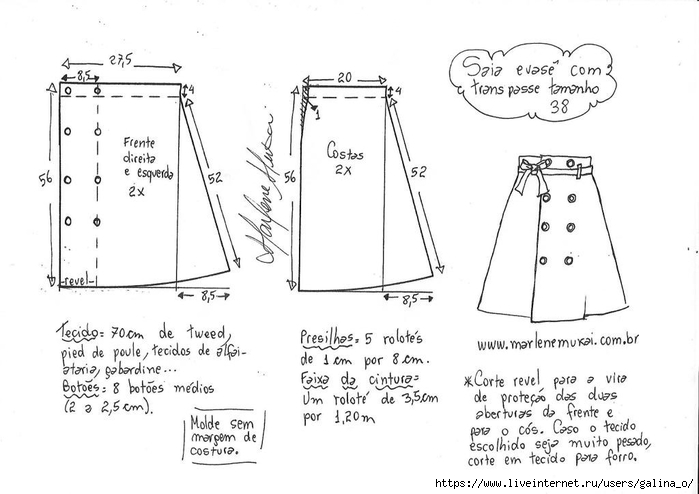 Saia evasê com
transpasse tamanho
38
27,5
8,5
4
56
Frente
direita
e esquerda
2x
52
revel
8,5
20
4
1
Costas
2x
56
52
8,5
Marlene Mukai
Tecido= 70cm de tweed,
pied de poule, tecidos de alfai-
ataria, gabardine...
Botões= 8 botões médios
(2 a 2,5cm).
Molde sem
margem de
costura.
Presilhas= 5 rolotés
de 1cm por 8cm.
Faixa da cintura=
Um roloté de 3,5cm
por 1,20m
www.marlenemukai.com.br
*Corte revel para a vira
de proteção das duas
aberturas da frente e
para o cós. Caso o tecido
escolhido seja muito pesado,
corte em tecido para forro.
https://www.liveinternet.ru/users/galina_o/